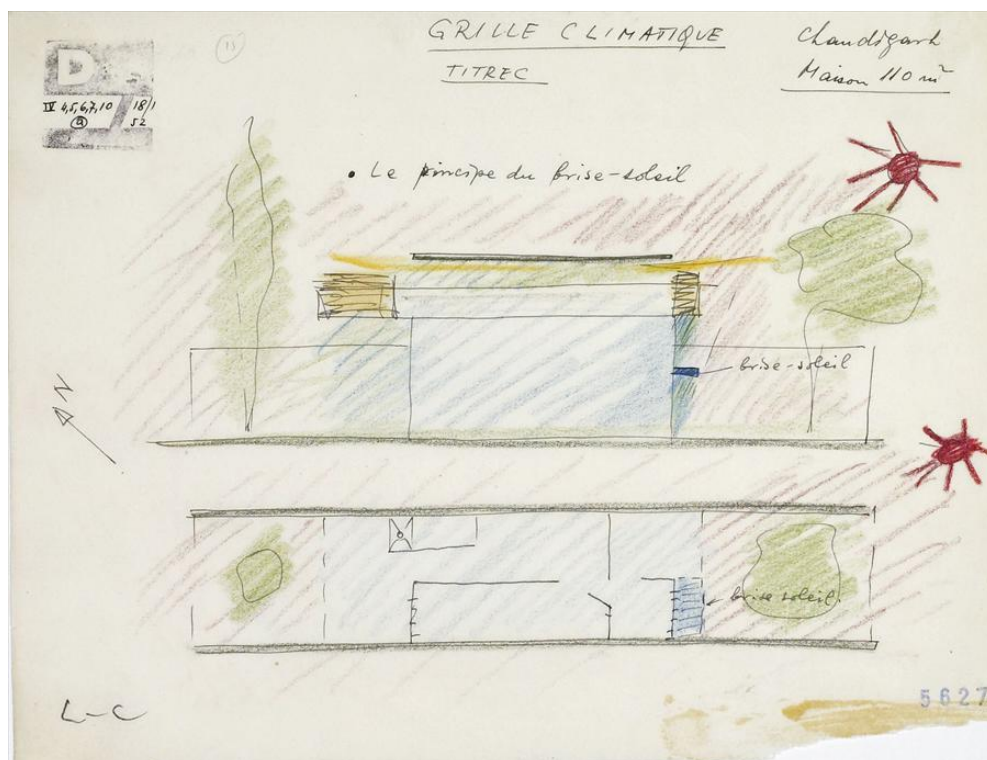 D
IV 4,5,6,7,10 18/1
a 52
15
GRILLE CLIMATIQUE
TITREC
Chandigarh
Maison 110 m²
• Le principe du brise-soleil
brise-soleil
N
brise soleil
L-C
5627